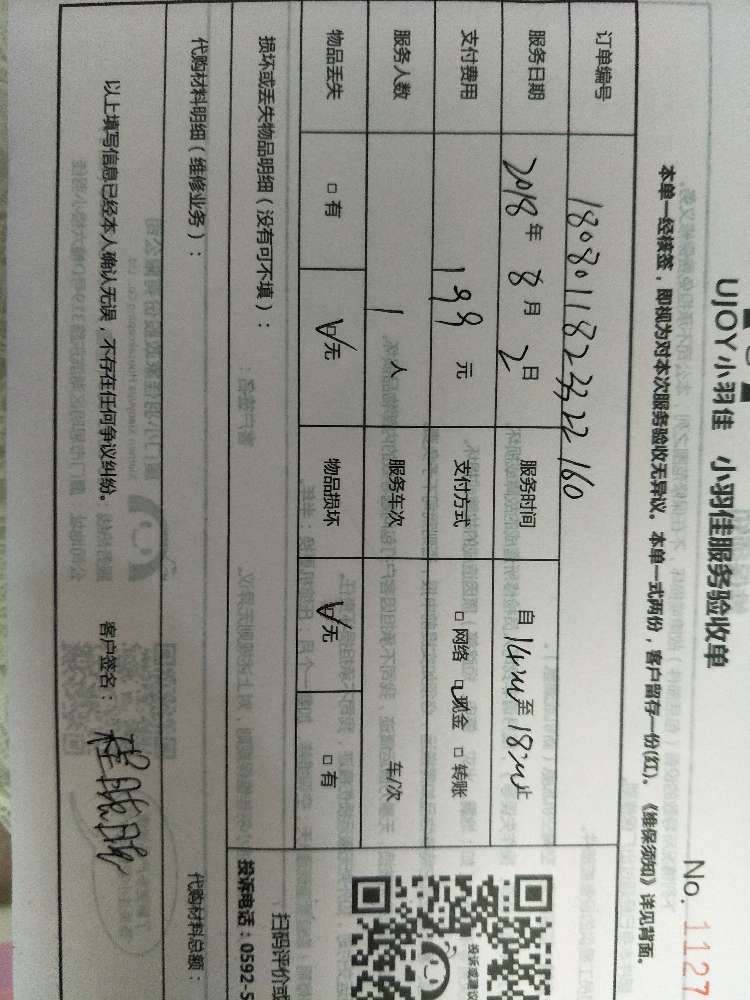 UJOY小羽佳 小羽佳服务验收单
No. 1127
本单一经核签，即视为对本次服务验收无异议。本单一式两份，客户留存一份(红)。《维保须知》详见背面。
订单编号
服务日期 2018年 8月 2日 服务时间 自 至
支付费用 199 元 支付方式 □网络 □现金 □转账
服务人数 1 人 服务车次 车/次
物品丢失 □有 □无 物品损坏 □无 □有
损坏或丢失物品明细（没有可不填）：
扫码评价或
投诉电话：0592-5
代购材料明细（维修业务）： 代购材料总额：
以上填写信息已经本人确认无误，不存在任何争议纠纷。 客户签名：